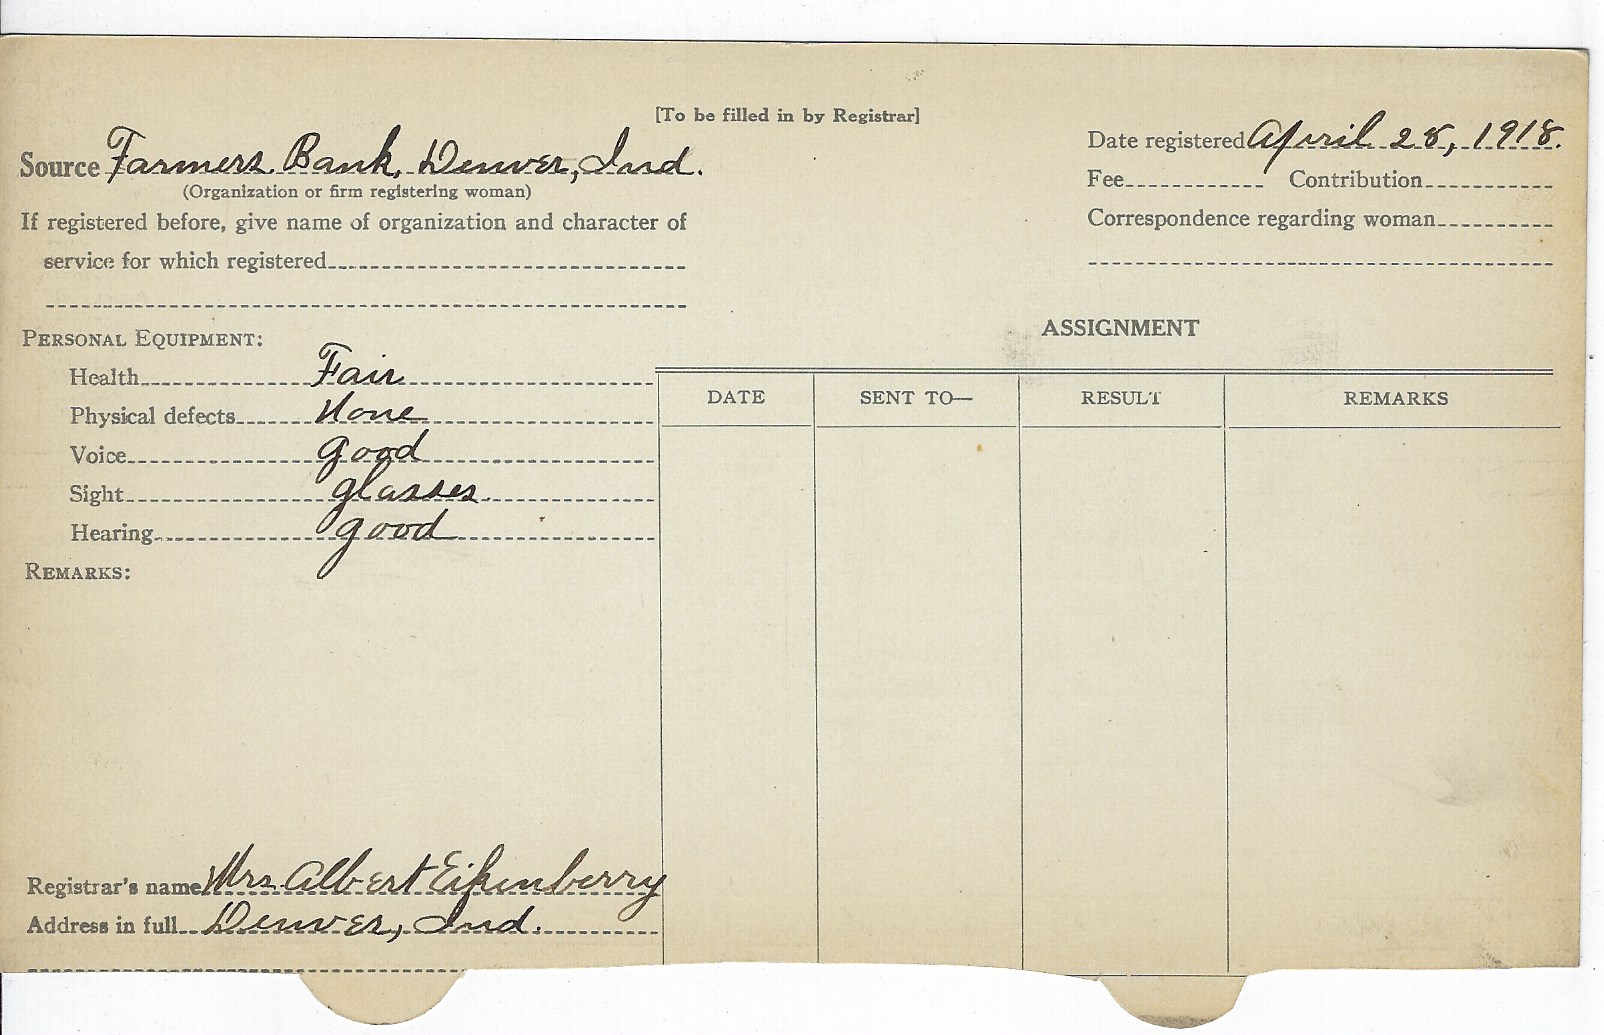 [To be filled in by Registrar]
Source Farmers Bank, Denver, Ind.
(Organization or firm registering woman)
If registered before, give name of organization and character of
service for which registered
Date registered April 28, 1918.
Fee Contribution
Correspondence regarding woman
PERSONAL EQUIPMENT:
Health Fair
Physical defects None
Voice good
Sight glasses.
Hearing good
REMARKS:
Registrar's name Mrs. Albert Eikenberry
Address in full Denver, Ind.
ASSIGNMENT
DATE SENT TO— RESULT REMARKS